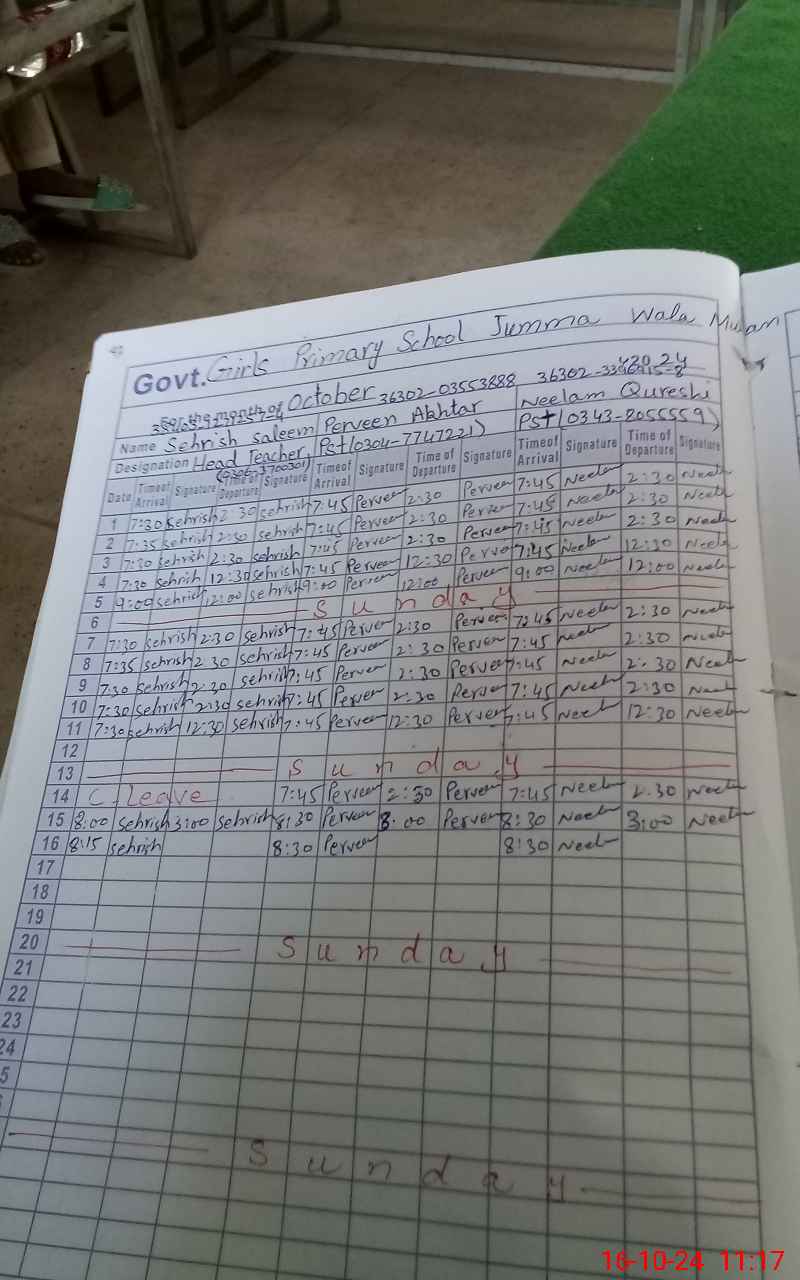 Govt. Girls Primary School Jumma Wala Multan
October 36302-03553888 36302-
Name Sehrish Saleem Perveen Akhtar Neelam Qureshi
Designation Head Teacher Pst(0304-7747221) Pst(0343-8055559)
(0306-3700301)
Date Time of Arrival Signature Time of Departure Signature Time of Arrival Signature Time of Departure Signature Time of Arrival Signature Time of Departure Signature
1 7:30 Sehrish 2:30 Sehrish 7:45 Perveen 2:30 Perveen 7:45 Neelam 2:30 Neelam
2 7:35 Sehrish 2:30 Sehrish 7:45 Perveen 2:30 Perveen 7:45 Neelam 2:30 Neelam
3 7:30 Sehrish 2:30 Sehrish 7:45 Perveen 2:30 Perveen 7:45 Neelam 2:30 Neelam
4 7:30 Sehrish 12:30 Sehrish 7:45 Perveen 12:30 Perveen 7:45 Neelam 12:30 Neelam
5 9:00 Sehrish 12:00 Sehrish 9:00 Perveen 12:00 Perveen 9:00 Neelam 12:00 Neelam
6 Sunday
7 7:30 Sehrish 2:30 Sehrish 7:45 Perveen 2:30 Perveen 7:45 Neelam 2:30 Neelam
8 7:35 Sehrish 2:30 Sehrish 7:45 Perveen 2:30 Perveen 7:45 Neelam 2:30 Neelam
9 7:30 Sehrish 2:30 Sehrish 7:45 Perveen 2:30 Perveen 7:45 Neelam 2:30 Neelam
10 7:30 Sehrish 2:30 Sehrish 7:45 Perveen 2:30 Perveen 7:45 Neelam 2:30 Neelam
11 7:30 Sehrish 12:30 Sehrish 7:45 Perveen 12:30 Perveen 7:45 Neelam 12:30 Neelam
12
13 Sunday
14 C. Leave 7:45 Perveen 2:30 Perveen 7:45 Neelam 2:30 Neelam
15 8:00 Sehrish 3:00 Sehrish 8:30 Perveen 3:00 Perveen 8:30 Neelam 3:00 Neelam
16 8:15 Sehrish 8:30 Perveen 8:30 Neelam
17
18
19
20 Sunday
21
22
23
24
5
Sunday
16-10-24 11:17